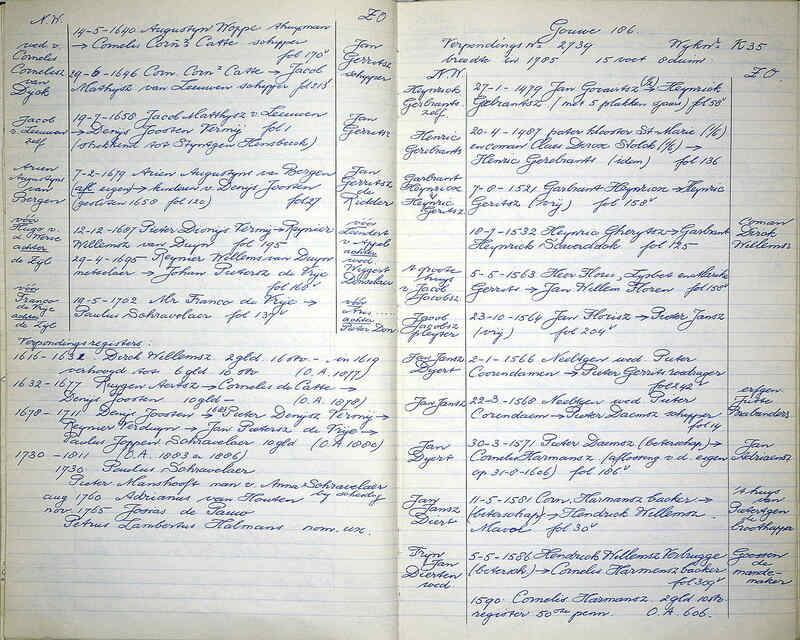 N.W.
Z.O
wed v.
Cornelis
14-5-1640 Augustyn Woppe
→ Cornelis Cornsz Catte schipper
fol 170v
Jan
Gerritsz
schipper
Cornelisz
van
Dyck
29-6-1646 Corn. Cornsz Catte → Jacob
Mathysz van Leeuwen schipper fol 218v
Jacob
v. Leeuwen
zelf
19-7-1658 Jacob Matthysz v. Leeuwen
→ Denys Joosten Vermij fol 1
(strekkens tot Styntgen Hensbeeck)
Jan
Gerritsz
Arien
Augustyns
van
Bergen
7-2-1679 Arien Augustyns van Bergen
(afl. eigen) → kinderen v. Denys Joosten
(gesloten 1658 fol 120) fol 27
Jan
Gerritsz
de
Ridder
vóór
Hugo v.
achter
de Zyl
12-12-1687 Pieter Dionijs Vermij → Reynier
Willemsz van Duyn fol 195
29-4-1695 Reynier Willems van Duyn
metselaer → Johan Pietersz de Vrije
fol 160v
vóór
Leendert
v. Appel
achter
wed.
Weggert
vóór
Franco
de Vrije
achter
de Zyl
19-5-1702 Mr Franco de Vrije →
Paulus Schravelaer fol 137v
vóór
achter
Pieter Don
Verpondingsregisters:
1616-1632 Dirck Willemsz 2gld 16st - in 1619
verhoogd tot 6gld 10st (O.A. 1877)
1632-1677 Ruygen Aertsz → Cornelis de Catte →
Denys Joosten 10gld - (O.A. 1878)
1678-1711 Denys Joosten → 1680 Pieter Denysz Vermij →
Reynier Verduyn → Jan Pietersz de Vrije →
Paulus Joppen Schravelaer 10gld (O.A. 1880)
1730-1811 (O.A. 1883 en 1886)
1730 Paulus Schravelaer
Pieter Manshooft man v. Anna Schravelaer
by scheidg
aug 1760 Adrianus van Houten
nov. 1765 Josias de Pauw
Petrus Lambertus Halmans nom. ux.
Gouwe 186.
Verpondings No 2739 Wyknr K35
breedte in 1785 15 voet 8 duim
N.W.
Z.O.
Heynrick
Gerbrants
zelf
27-1-1479 Jan Govertsz (½) → Heynrick
Gerbrantsz (met 5 plakken sjaers) fol 58v
Henric
Gerebrants
20-4-1487 pater klooster St Marie (½)
en coman Claes Dircx Stolck (½) →
Henric Gerebrants (idem) fol 136
Garbrant
Heynricx
Heynric
Geritsz
7-8-1521 Garbrant Heynricx → Heynric
Geritsz (vrij) fol 158v
18-7-1532 Heynric Gherytsz → Garbrant
Heynrick fol 125
Coman
Dirck
Willemsz
't groote
huys
v. Jacob
Jacobsz
5-5-1563 Heer Floris, Lysbet en Maritie
Gerrits → Jan Willem Floren fol 150v
Jacob
Jacobsz
pleyser
23-10-1564 Jan Florisz → Pieter Jansz
(vrij) fol 204v
Jan Jansz
Dyert
2-1-1566 Neeltgen wed Pieter
Coorendamen → Pieter Gerrits rodrager
fol 242v
Jan Jansz
22-3-1568 Neeltgen wed Pieter
Corendaem → Pieter Daemsz schipper
fol 14
erfgen
Joste
Brabanders
Jan
Dyert
30-3-1571 Pieter Daemsz (beterschap) →
Cornelis Harmansz (aflossing v.d. eigen
op 31-8-1606) fol 186v
Jan
Adriaensz
Jan
Jansz
Diert
11-5-1581 Corn. Harmansz backer →
(beterschap) → Hendrick Willemsz
fol 30v
't huys
van
Pietertgen
de
Croothapper
Tryn
Jan
Dierten
wed
5-5-1586 Hendrick Willemsz Verbrugge
(betersch) → Cornelis Harmensz backer
fol 309v
Goossen
de
mande-
maker
1590 Cornelis Harmansz 2gld 10st
register 50ste penn. O.A. 606.